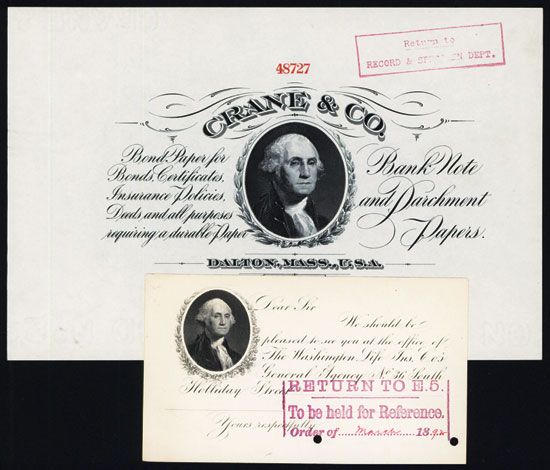 48727
Return to
RECORD & SPECIMEN DEPT.
CRANE & CO.
Bond Paper for
Bonds, Certificates,
Insurance Policies,
Deeds and all purposes
requiring a durable Paper
Bank Note
and Parchment
Papers.
DALTON, MASS., U.S.A.
Dear Sir
We should be
pleased to see you at the office of
The Washington Life Ins. Co's
General Agency No 36 South
Holliday Street
Yours respectfully
RETURN TO E.5.
To be held for Reference.
Order of March 1892